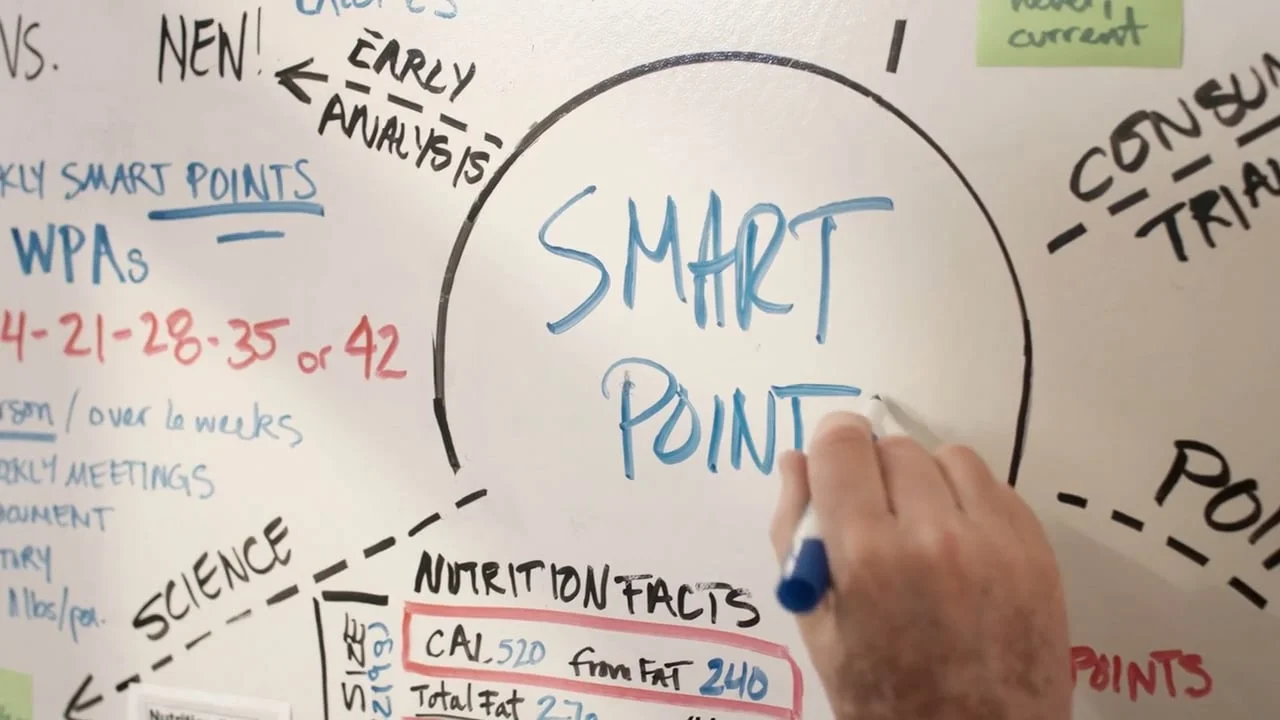 VS. NEW!
EARLY
ANALYSIS
current
CONSUM
TRIA
KLY SMART POINTS
WPAs
4-21-28-35 or 42
SMART
POINT
rson / over 6 weeks
EKLY MEETINGS
OCUMENT
SCIENCE
NUTRITION FACTS
CAL 520 from FAT 240
SIZE
Total Fat 27g
POIN
POINTS